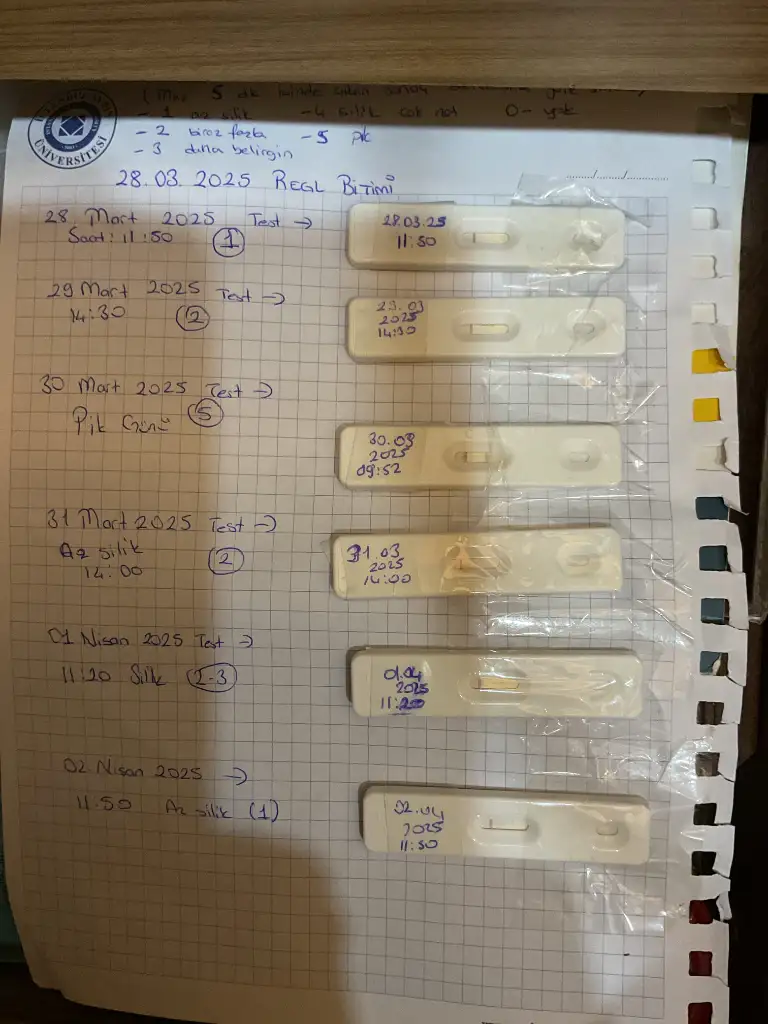 5 dk
- 1 az silik - 4 silik 0 - yok
- 2 biraz fazla - 5 pik
- 3 daha belirgin
ÜNİVERSİTESİ
28.03.2025 REGL BİTİMİ
...../...../.........
28 Mart 2025 Test →
Saat: 11:50 1
28.03.25
11:50
29 Mart 2025 Test →
14:30 2
29.03
2025
14:30
30 Mart 2025 Test →
Pik Günü 5
30.03
2025
09:52
31 Mart 2025 Test →
Az silik
14:00 2
31.03
2025
14:00
01 Nisan 2025 Test →
11:20 Silik 2-3
01.04
2025
11:20
02 Nisan 2025 →
11:50 Az silik (1)
02.04
2025
11:50